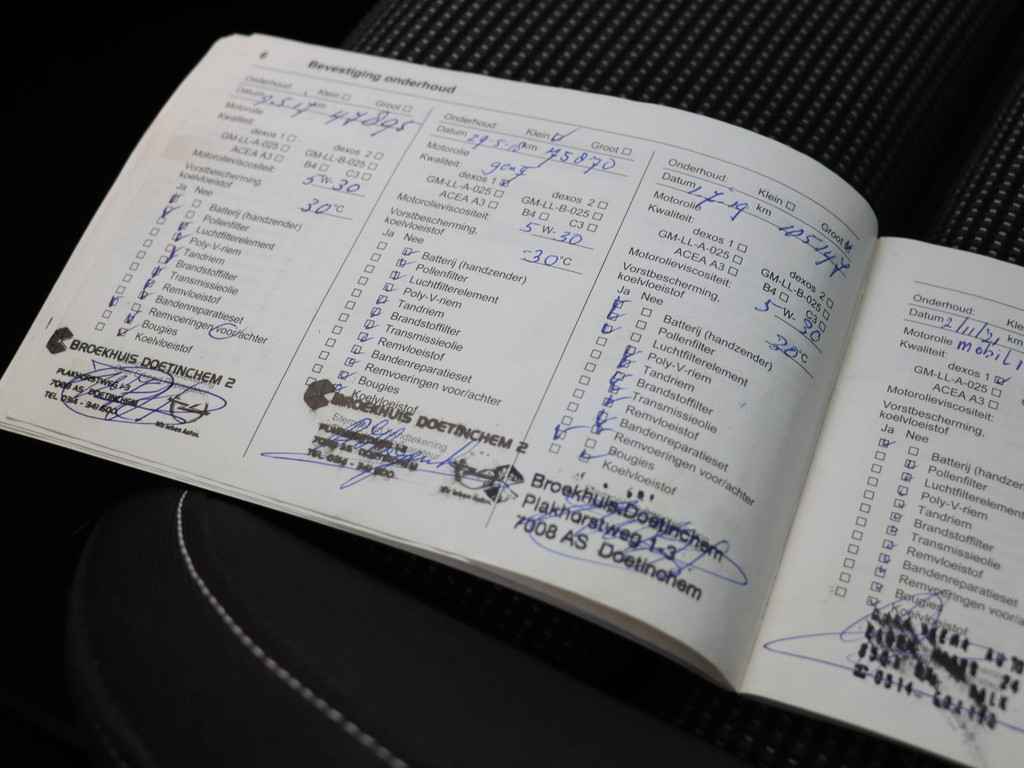 6 Bevestiging onderhoud
Onderhoud: Klein Groot
Datum 9-5-17 km 47895
Motorolie
Kwaliteit:
dexos 1 dexos 2
GM-LL-A-025 GM-LL-B-025
ACEA A3 B4 C3
Motorolieviscositeit: 5 W- 30
Vorstbescherming, koelvloeistof 30 °C
Ja Nee
Batterij (handzender)
Pollenfilter
Luchtfilterelement
Poly-V-riem
Tandriem
Brandstoffilter
Transmissieolie
Remvloeistof
Bandenreparatieset
Remvoeringen voor/achter
Bougies
Koelvloeistof
BROEKHUIS DOETINCHEM 2
PLAKHORSTWEG 1-3
7008 AS DOETINCHEM
TEL. 0314 - 341500
Wij leven Auto.
Onderhoud: Klein Groot
Datum 29-5-18 km 75870
Motorolie
Kwaliteit:
dexos 1 dexos 2
GM-LL-A-025 GM-LL-B-025
ACEA A3 B4 C3
Motorolieviscositeit: 5 W- 30
Vorstbescherming,
koelvloeistof -30 °C
Ja Nee
Batterij (handzender)
Pollenfilter
Luchtfilterelement
Poly-V-riem
Tandriem
Brandstoffilter
Transmissieolie
Remvloeistof
Bandenreparatieset
Remvoeringen voor/achter
Bougies
Koelvloeistof
BROEKHUIS DOETINCHEM 2
7008 AS DOETINCHEM
Wij leven Auto.
Onderhoud: Klein Groot
Datum km 105147
Motorolie
Kwaliteit:
dexos 1 dexos 2
GM-LL-A-025 GM-LL-B-025
ACEA A3 B4 C3
Motorolieviscositeit: 5 W- 30
Vorstbescherming,
koelvloeistof -30 °C
Ja Nee
Batterij (handzender)
Pollenfilter
Luchtfilterelement
Poly-V-riem
Tandriem
Brandstoffilter
Transmissieolie
Remvloeistof
Bandenreparatieset
Remvoeringen voor/achter
Bougies
Koelvloeistof
Broekhuis Doetinchem
Plakhorstweg 1-3
7008 AS Doetinchem
Onderhoud: Klei
Datum 2/11/21 km
Motorolie mobil 1
Kwaliteit:
dexos 1
GM-LL-A-025
ACEA A3
Motorolieviscositeit:
Vorstbescherming,
koelvloeistof
Ja Nee
Batterij (handzen
Pollenfilter
Luchtfilterelement
Poly-V-riem
Tandriem
Brandstoffilter
Transmissieolie
Remvloeistof
Bandenreparatieset
Remvoeringen voor/a
Bougies
Koelvloeistof